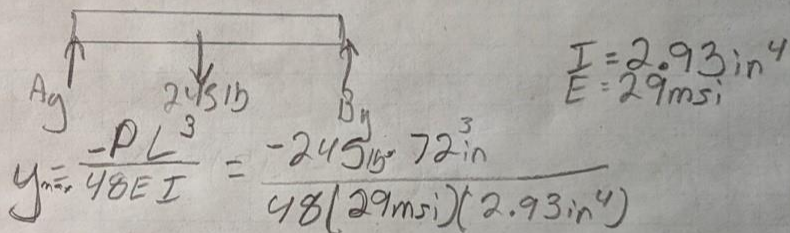 Ay 245lb By
I = 2.93in⁴
E = 29msi
ymax = -PL³ / 48EI = -245lb · 72³in / 48(29msi)(2.93in⁴)